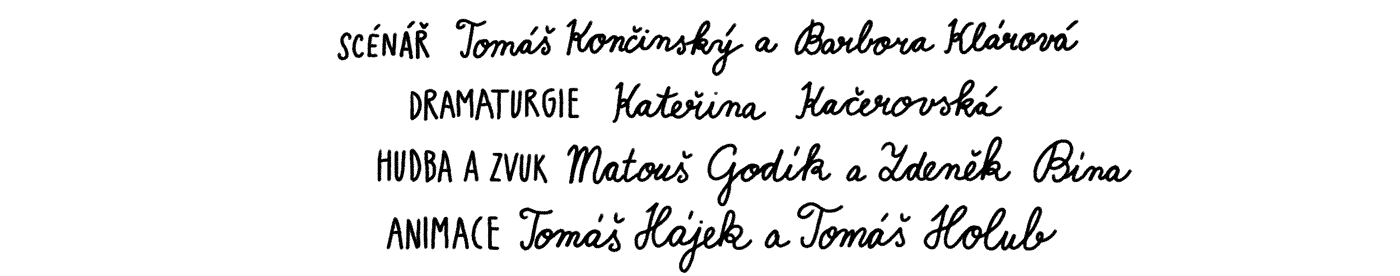 SCÉNÁŘ Tomáš Končinský a Barbora Klárová
DRAMATURGIE Kateřina Kačerovská
HUDBA A ZVUK Matouš Godík a Zdeněk Bína
ANIMACE Tomáš Hájek a Tomáš Holub